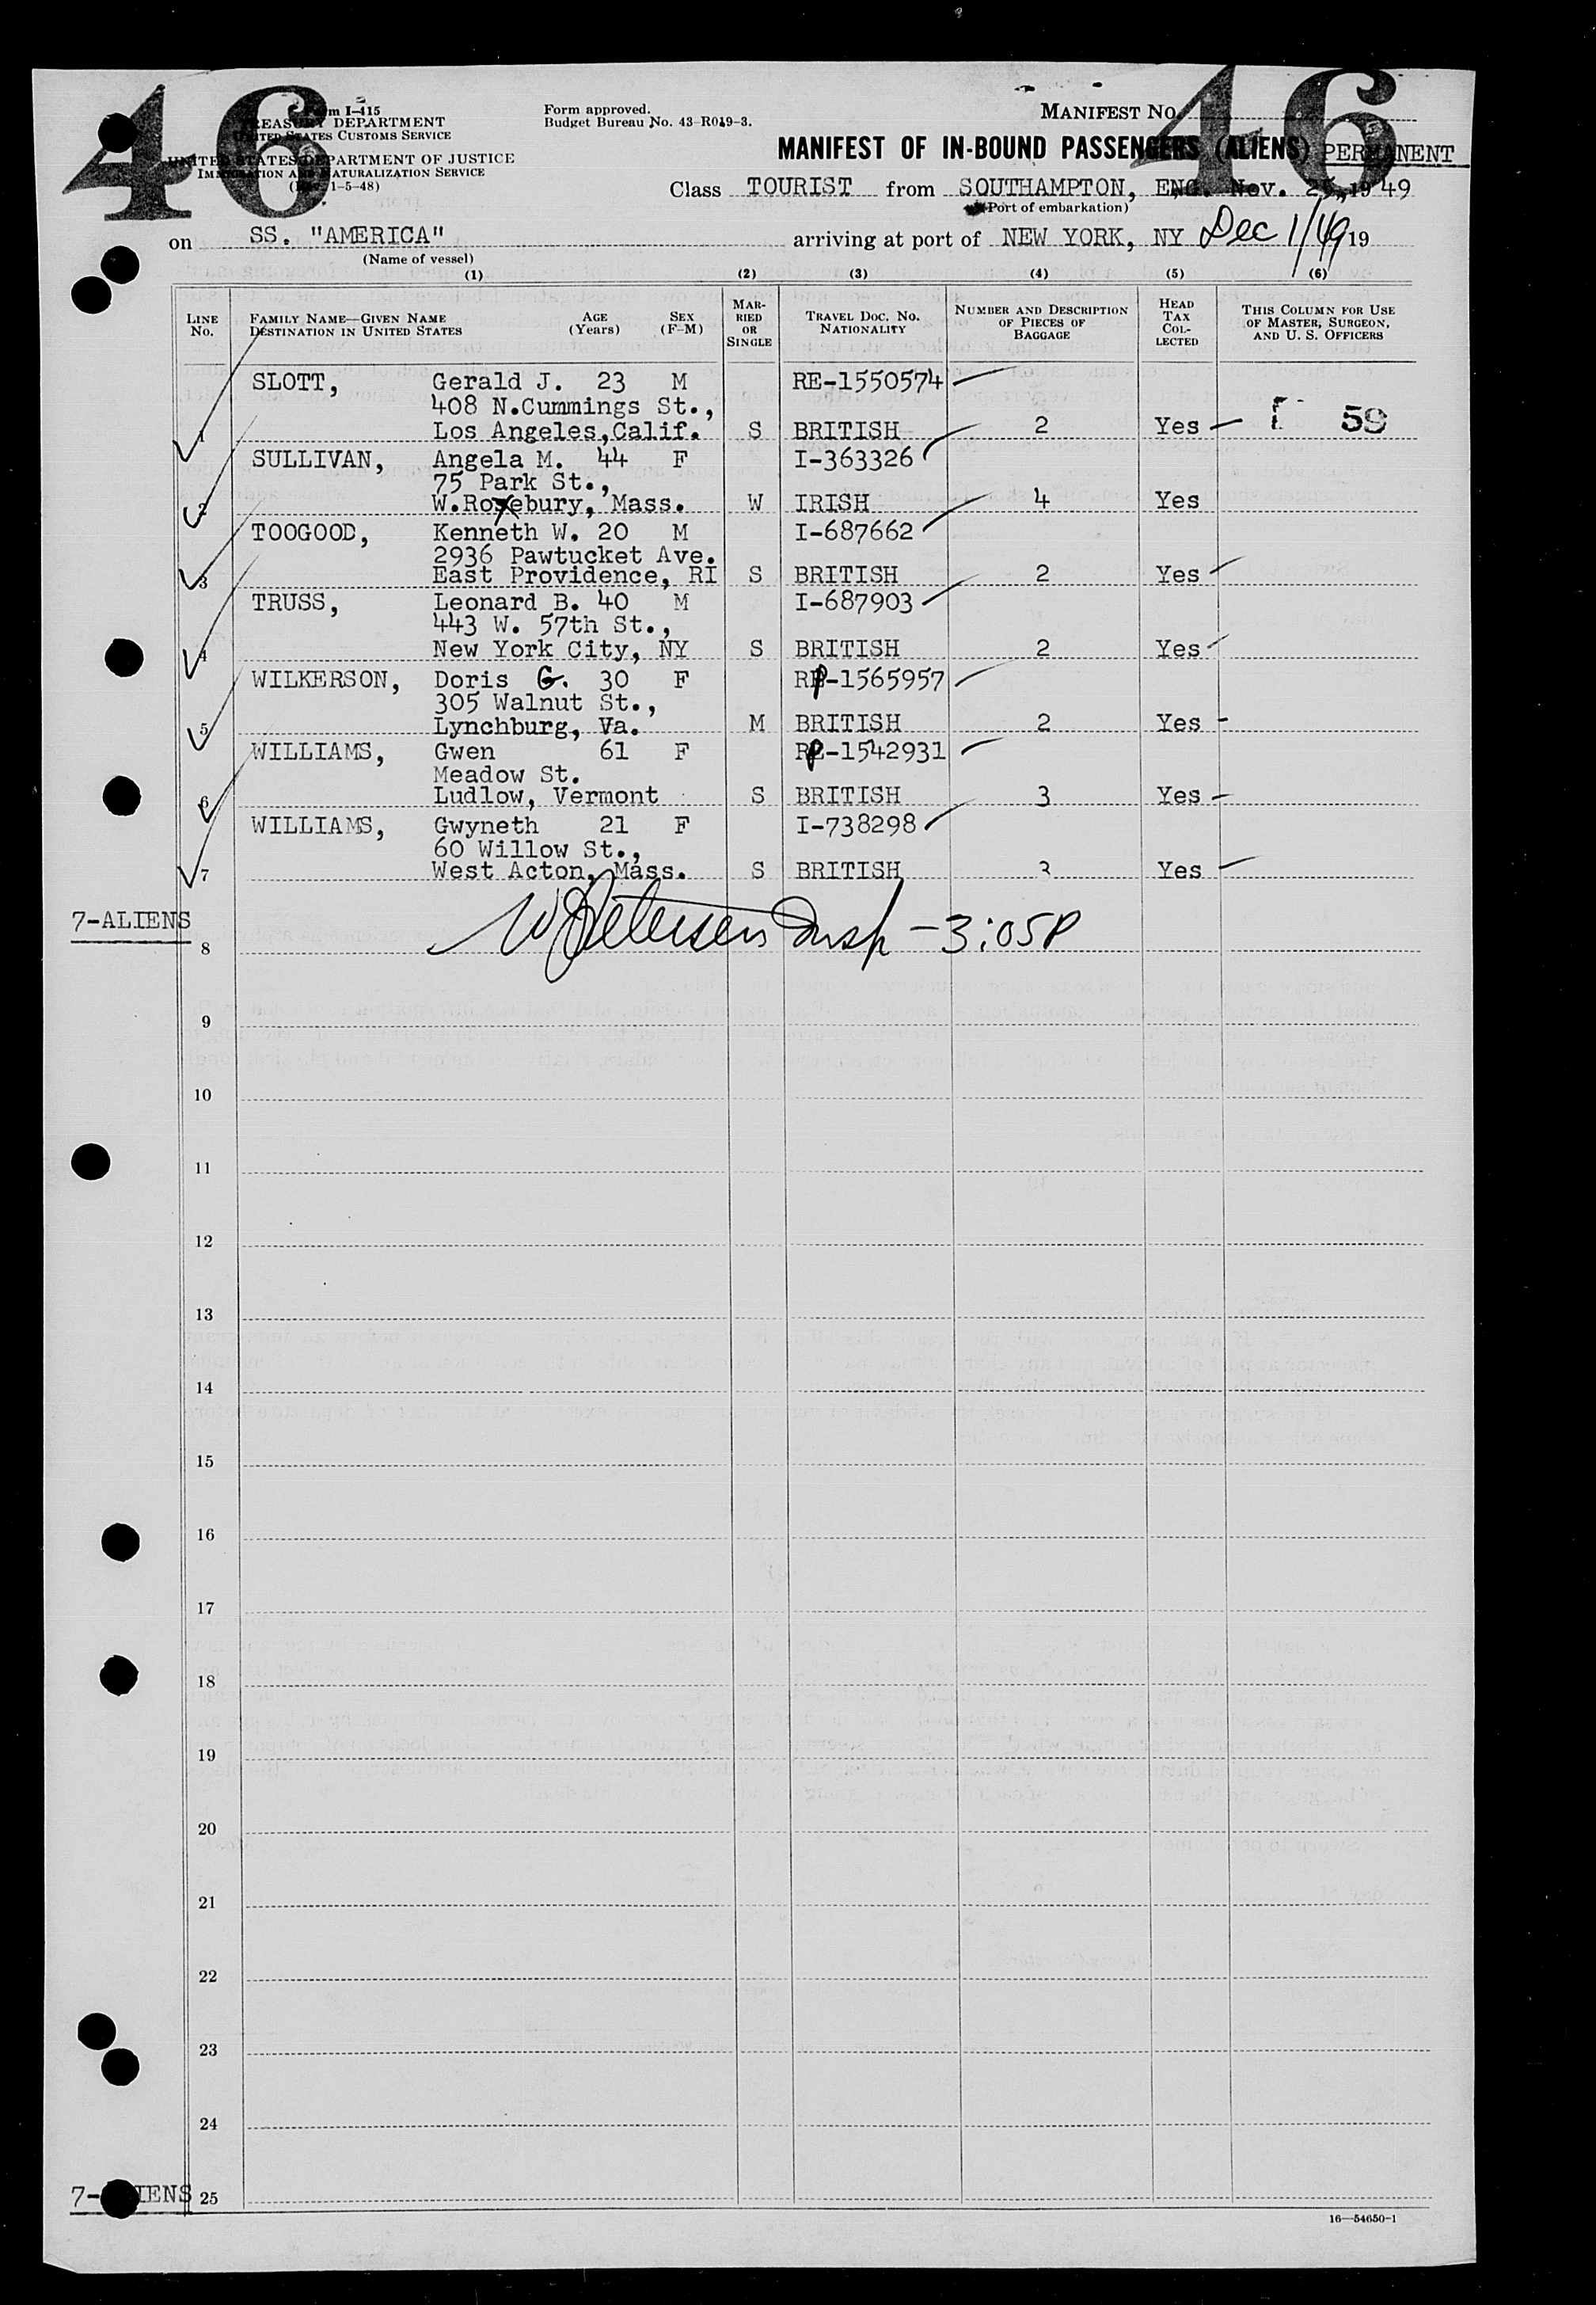 46
46
Form I-415
TREASURY DEPARTMENT
UNITED STATES CUSTOMS SERVICE
UNITED STATES DEPARTMENT OF JUSTICE
IMMIGRATION AND NATURALIZATION SERVICE
(Rev. 1-5-48)
Form approved.
Budget Bureau No. 43-R019-3.
MANIFEST No.
MANIFEST OF IN-BOUND PASSENGERS (ALIENS) PERMANENT
Class TOURIST from SOUTHAMPTON, ENG. Nov. 25, 19 49
(Port of embarkation)
on SS. "AMERICA" arriving at port of NEW YORK, NY Dec 1/49 19
(Name of vessel)
(1) (2) (3) (4) (5) (6)
LINE No. FAMILY NAME—GIVEN NAME DESTINATION IN UNITED STATES AGE (Years) SEX (F-M) MARRIED OR SINGLE TRAVEL DOC. NO. NATIONALITY NUMBER AND DESCRIPTION OF PIECES OF BAGGAGE HEAD TAX COLLECTED THIS COLUMN FOR USE OF MASTER, SURGEON, AND U. S. OFFICERS
SLOTT, Gerald J. 23 M RE-1550574
408 N.Cummings St.,
1 Los Angeles,Calif. S BRITISH 2 Yes 59
SULLIVAN, Angela M. 44 F I-363326
75 Park St.,
2 W.Roxebury, Mass. W IRISH 4 Yes
TOOGOOD, Kenneth W. 20 M I-687662
2936 Pawtucket Ave.
3 East Providence, RI S BRITISH 2 Yes
TRUSS, Leonard B. 40 M I-687903
443 W. 57th St.,
4 New York City, NY S BRITISH 2 Yes
WILKERSON, Doris G. 30 F RP-1565957
305 Walnut St.,
5 Lynchburg, Va. M BRITISH 2 Yes
WILLIAMS, Gwen 61 F RP-1542931
Meadow St.
6 Ludlow, Vermont S BRITISH 3 Yes
WILLIAMS, Gwyneth 21 F I-738298
60 Willow St.,
7 West Acton, Mass. S BRITISH 3 Yes
7-ALIENS
8 W Petersen Insp - 3:05P
9
10
11
12
13
14
15
16
17
18
19
20
21
22
23
24
7-ALIENS 25
16—54650-1